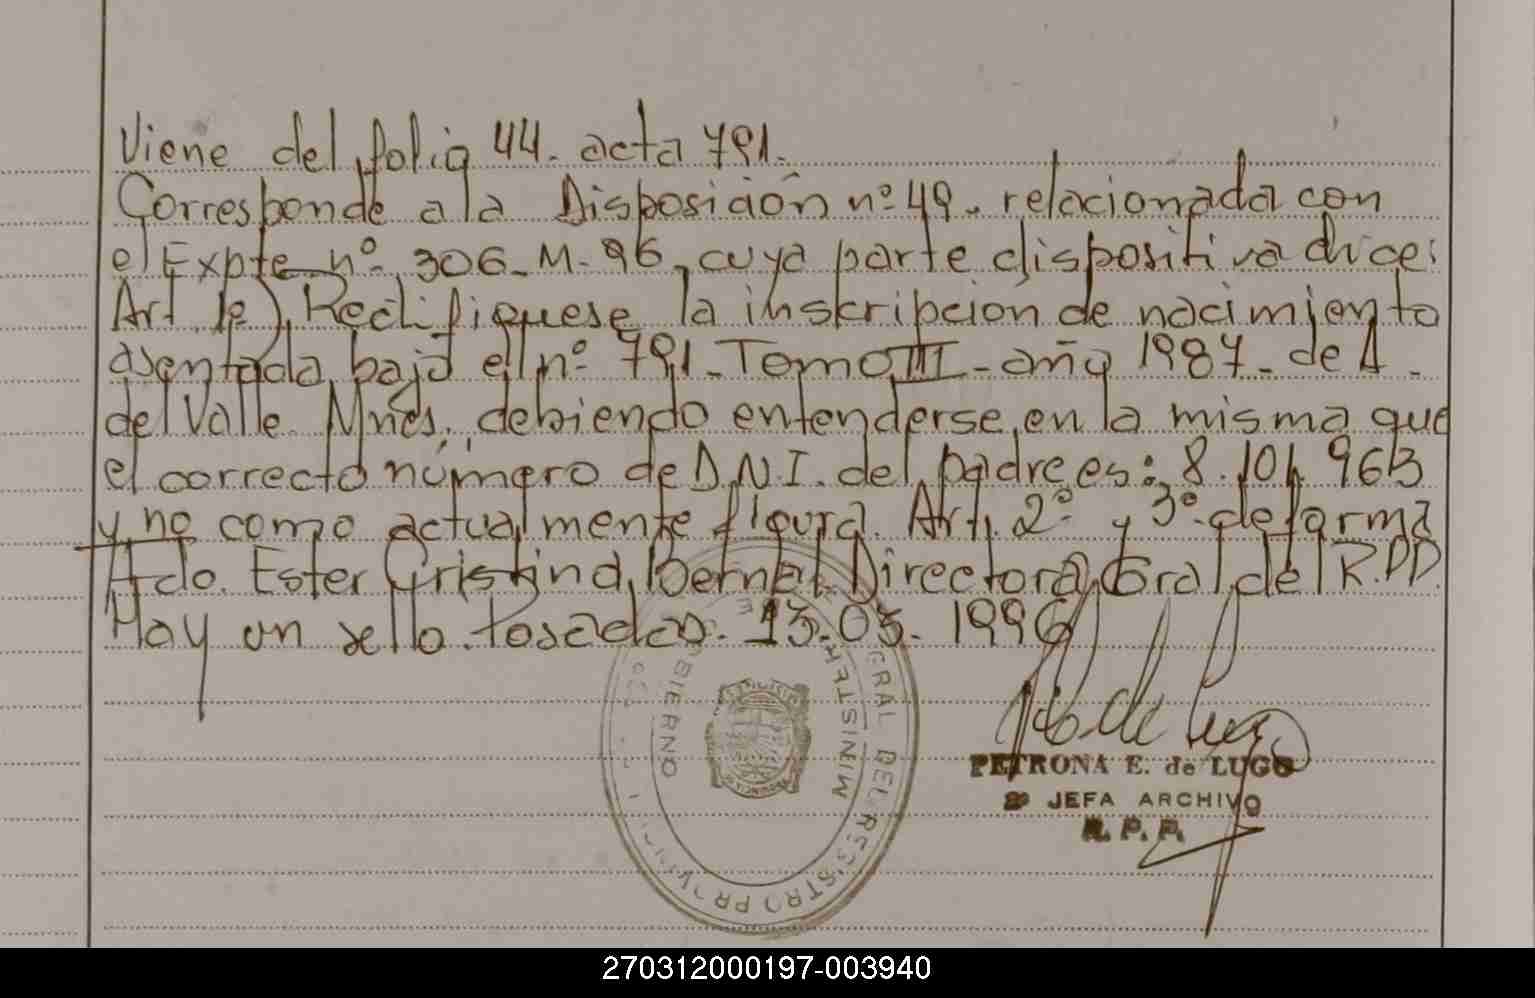 Viene del folio 44. acta 791.
Corresponde a la Disposición nº 49. relacionada con
el Expte nº 306-M-96, cuya parte dispositiva dice:
Art. 1º) Rectifiquese la inskripcion de nacimiento
asentada bajo el nº 791-Tomo III-año 1987-de A.
del Valle Mnes, debiendo entenderse en la misma que
el correcto número de D.N.I. del padre es: 8.101.963
y no como actualmente figura. Art. 2º y 3º de forma
Fdo. Ester Cristina Bernal Directora Gral del R.PP.
Hay un sello. Posadas. 13.05.1996
GRAL DEL REGISTRO PROVINCIAL
MINISTERIO DE GOBIERNO
PETRONA E. de LUGO
JEFA ARCHIVO
R. P. P.
270312000197-003940